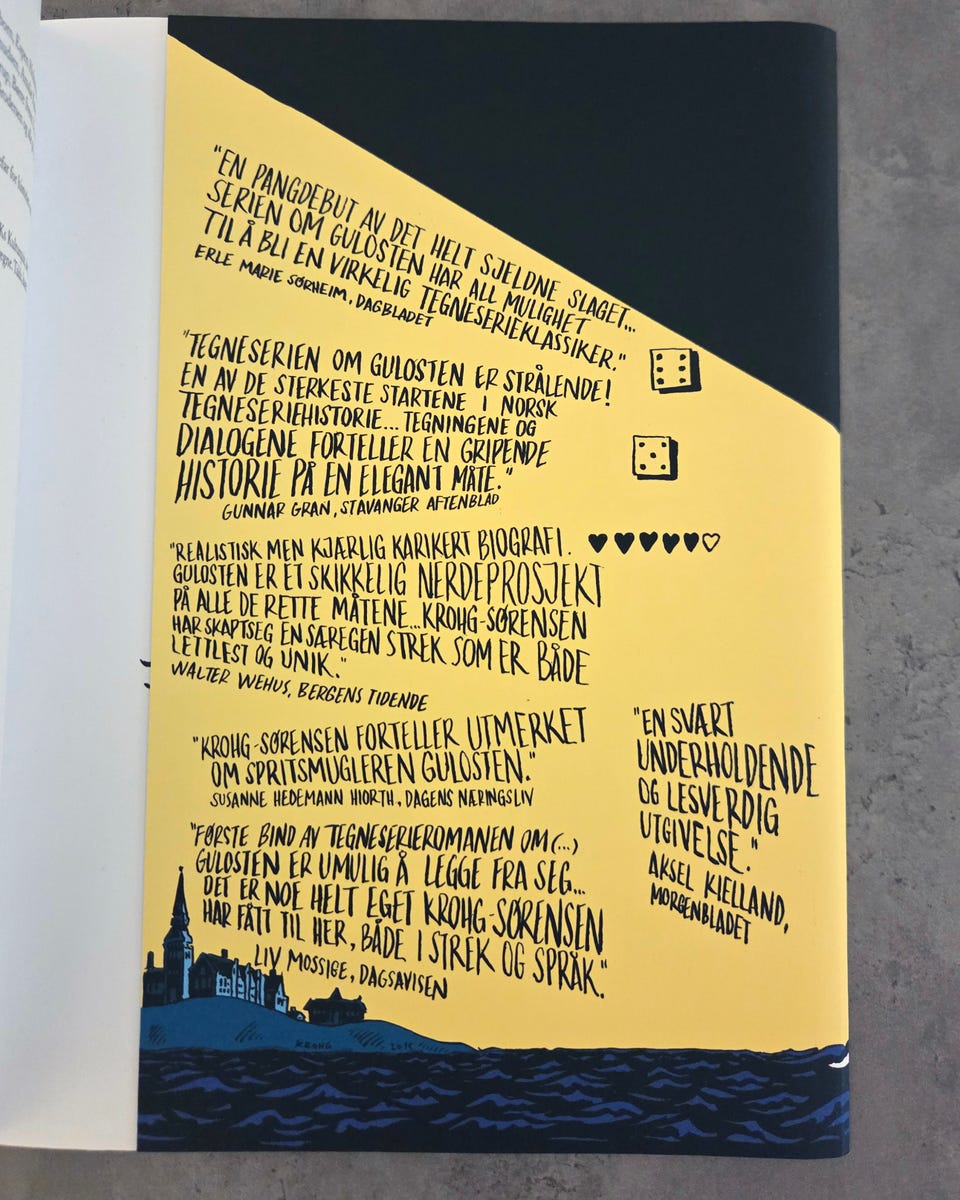 "EN PANGDEBUT AV DET HELT SJELDNE SLAGET...
SERIEN OM GULOSTEN HAR ALL MULIGHET
TIL Å BLI EN VIRKELIG TEGNESERIEKLASSIKER."
ERLE MARIE SØRHEIM, DAGBLADET
"TEGNESERIEN OM GULOSTEN ER STRÅLENDE!
EN AV DE STERKESTE STARTENE I NORSK
TEGNESERIEHISTORIE... TEGNINGENE OG
DIALOGENE FORTELLER EN GRIPENDE
HISTORIE PÅ EN ELEGANT MÅTE."
GUNNAR GRAN, STAVANGER AFTENBLAD
"REALISTISK MEN KJÆRLIG KARIKERT BIOGRAFI.
GULOSTEN ER ET SKIKKELIG NERDEPROSJEKT
PÅ ALLE DE RETTE MÅTENE...KROHG-SØRENSEN
HAR SKAPT SEG EN SÆREGEN STREK SOM ER BÅDE
LETTLEST OG UNIK."
WALTER WEHUS, BERGENS TIDENDE
"KROHG-SØRENSEN FORTELLER UTMERKET
OM SPRITSMUGLEREN GULOSTEN."
SUSANNE HEDEMANN HIORTH, DAGENS NÆRINGSLIV
"EN SVÆRT
UNDERHOLDENDE
OG LESVERDIG
UTGIVELSE."
AKSEL KIELLAND,
MORGENBLADET
"FØRSTE BIND AV TEGNESERIEROMANEN OM (...)
GULOSTEN ER UMULIG Å LEGGE FRA SEG...
DET ER NOE HELT EGET KROHG-SØRENSEN
HAR FÅTT TIL HER, BÅDE I STREK OG SPRÅK."
LIV MOSSIGE, DAGSAVISEN
KROHG